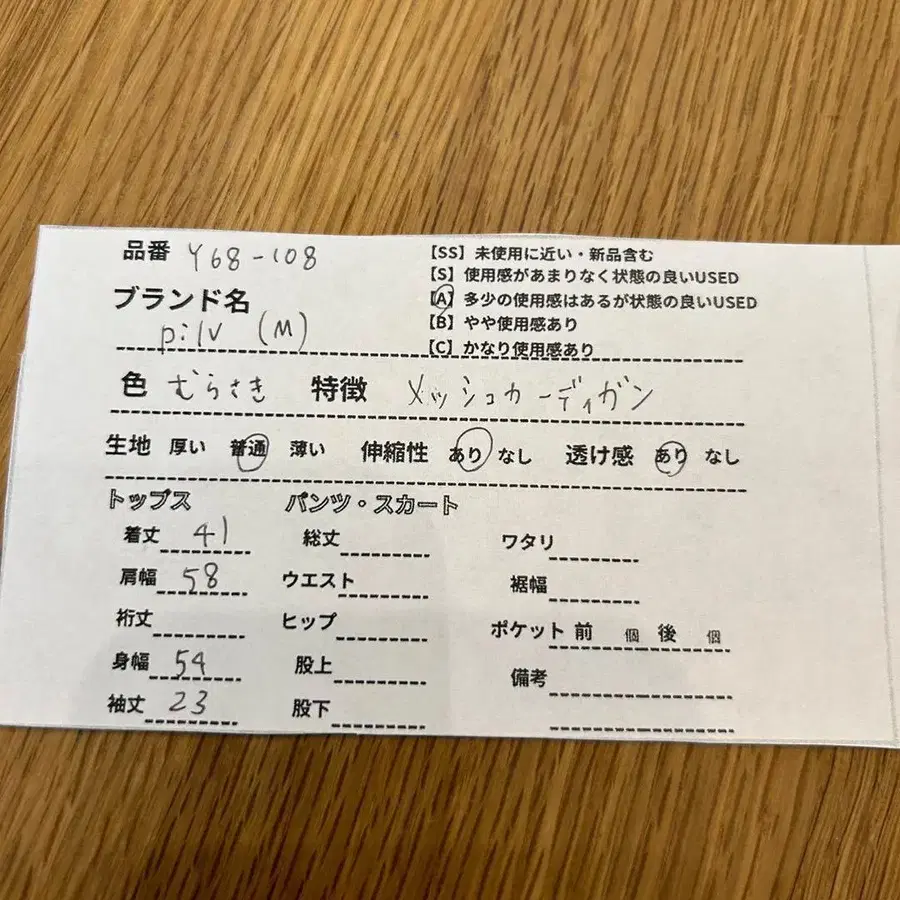 品番 Y68-108
【SS】未使用に近い・新品含む
【S】使用感があまりなく状態の良いUSED
【A】多少の使用感はあるが状態の良いUSED
【B】やや使用感あり
【C】かなり使用感あり
ブランド名
pilv (M)
色 むらさき 特徴 メッシュカーディガン
生地 厚い 普通 薄い 伸縮性 あり なし 透け感 あり なし
トップス パンツ・スカート
着丈 41 総丈 ワタリ
肩幅 58 ウエスト 裾幅
裄丈 ヒップ ポケット 前 個 後 個
身幅 54 股上 備考
袖丈 23 股下